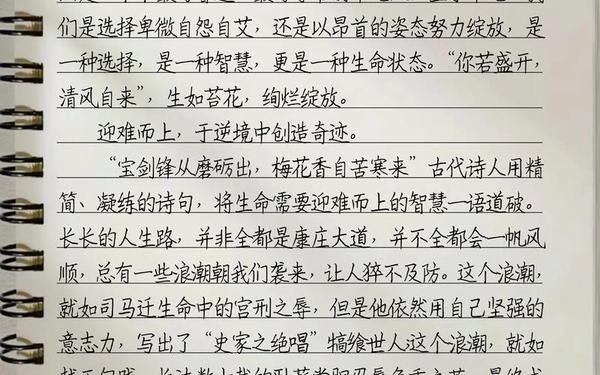 们是选择卑微自怨自艾，还是以昂首的姿态努力绽放，是
一种选择，是一种智慧，更是一种生命状态。“你若盛开，
清风自来”，生如苔花，绚烂绽放。
迎难而上，于逆境中创造奇迹。
“宝剑锋从磨砺出，梅花香自苦寒来”古代诗人用精
简、凝练的诗句，将生命需要迎难而上的智慧一语道破。
长长的人生路，并非全都是康庄大道，并不全都会一帆风
顺，总有一些浪潮朝我们袭来，让人猝不及防。这个浪潮，
就如司马迁生命中的宫刑之辱，但是他依然用自己坚强的
意志力，写出了“史家之绝唱”犒飨世人这个浪潮，就如